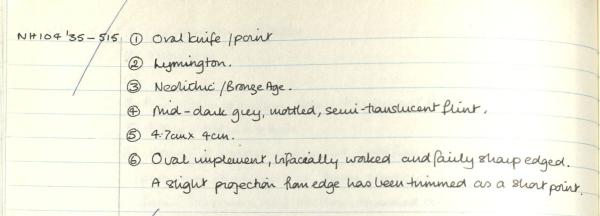 NH104 '35-515 ① Oval knife/point
② Lymington.
③ Neolithic/Bronze Age.
④ Mid-dark grey, mottled, semi-translucent flint.
⑤ 4.7cm x 4cm.
⑥ Oval implement, bifacially worked and fairly sharp edged.
A slight projection from edge has been trimmed as a short point.